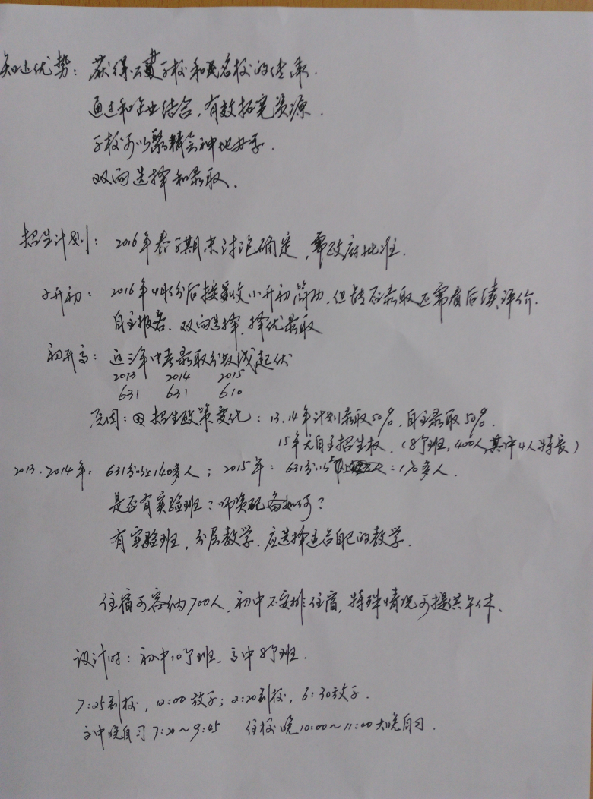 优势: 获得
通过和企业结合, 有效拓宽资源
学校可以聚精会神地办学.
双向选择和录取.
招生计划: 2016年春学期末讨论确定, 需政府批准.
小升初: 2016年4月份后接收小升初简历, 但能否录取还需看后续评价.
自主报名. 双向选择, 择优录取
初升高: 近三年中考录取分数线起伏
2013 2014 2015
631 631 610
原因: 招生政策变化: 13.14年计划录取50%, 自主录取50%.
15年无自主招生权. (8个班, 400人, 其中4人特长)
2013.2014年: 631分以上140多人; 2015年: 631分以上
是否有实验班? 师资配备如何?
有实验班, 分层教学. 应选择适合自己的教学.
住宿可容纳700人, 初中不安排住宿, 特殊情况可提供午休.
设计时: 初中10个班, 高中8个班.
7:25到校, 12:00放学; 2:20到校, 5:30放学.
高中晚自习7:20~9:45 住校晚10:00~11:00大晚自习.